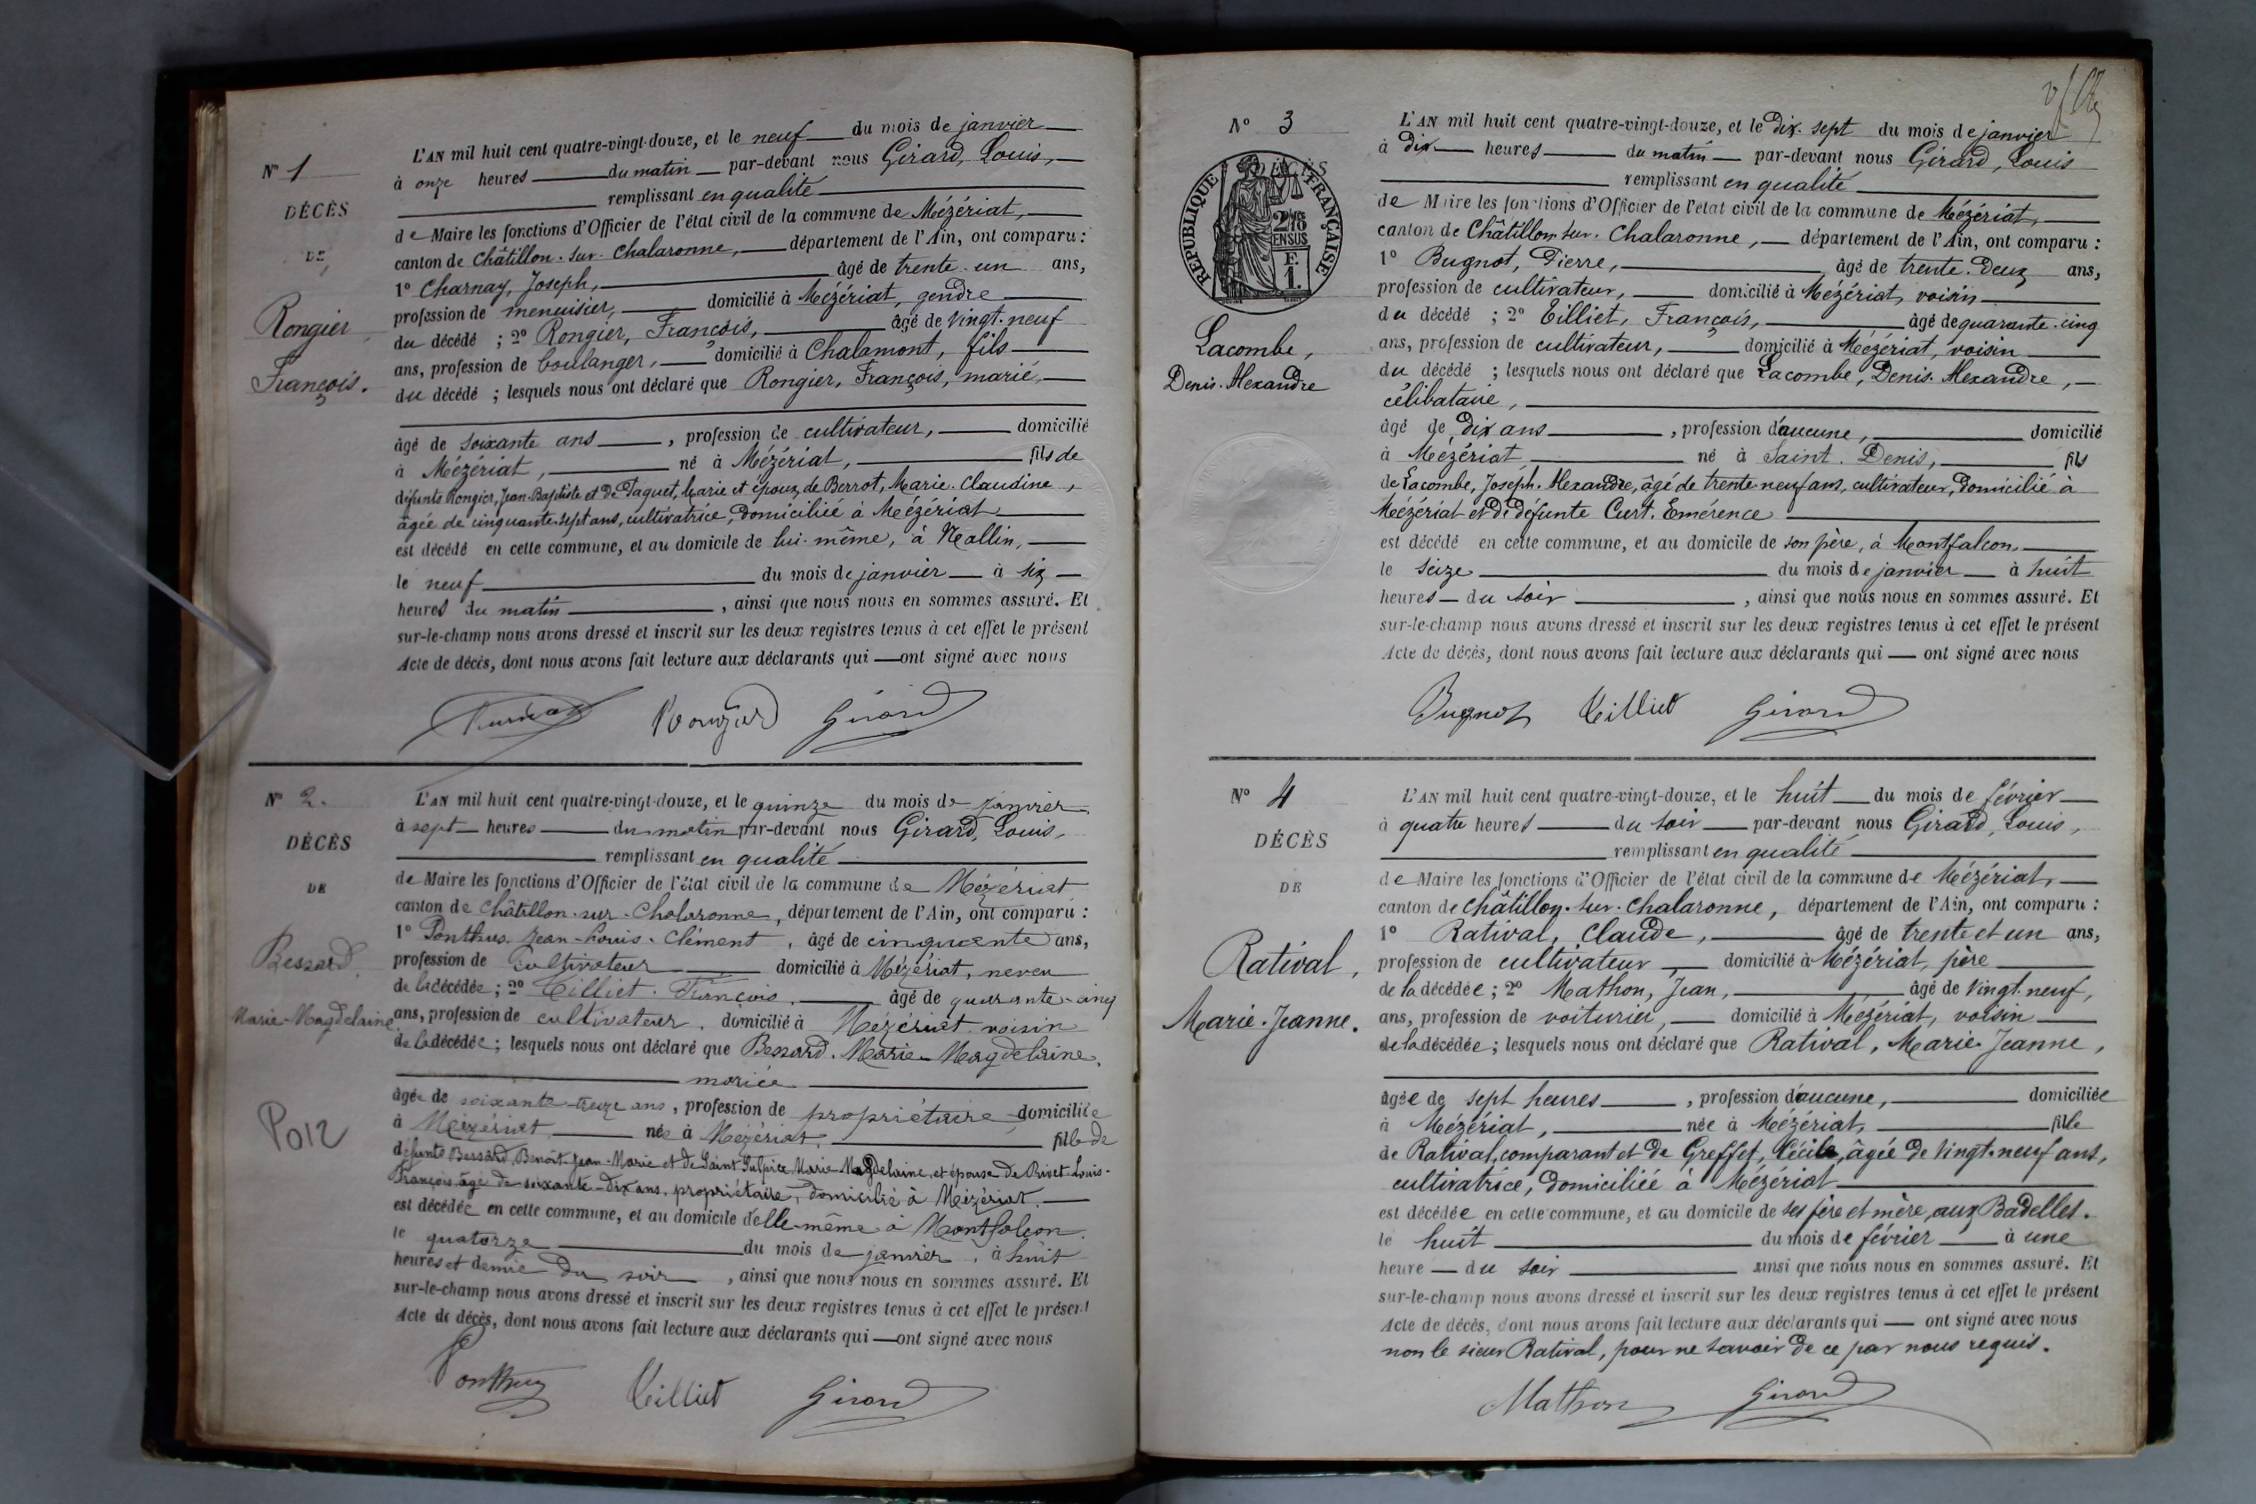 N° 1
DÉCÈS
DE
Rongier
François.
L'AN mil huit cent quatre-vingt-douze, et le neuf du mois de janvier
à onze heures du matin par-devant nous Girard, Louis,
remplissant en qualité
de Maire les fonctions d'Officier de l'état civil de la commune de Mézériat,
canton de Châtillon-sur-Chalaronne, département de l'Ain, ont comparu :
1° Charnay, Joseph, âgé de trente-un ans,
profession de menuisier, domicilié à Mézériat, gendre
du décédé ; 2° Rongier, François, âgé de vingt-neuf
ans, profession de boulanger, domicilié à Chalamont, fils
du décédé ; lesquels nous ont déclaré que Rongier, François, marié,
âgé de soixante ans, profession de cultivateur, domicilié
à Mézériat, né à Mézériat, fils de
défunts Rongier, Jean-Baptiste et de Paquet, Marie et époux de Berrot, Marie-Claudine,
âgée de cinquante-sept ans, cultivatrice, domiciliée à Mézériat
est décédé en cette commune, et au domicile de lui-même, à Nallin,
le neuf du mois de janvier à six
heures du matin, ainsi que nous nous en sommes assuré. Et
sur-le-champ nous avons dressé et inscrit sur les deux registres tenus à cet effet le présent
Acte de décès, dont nous avons fait lecture aux déclarants qui ont signé avec nous
Girard
N° 2.
DÉCÈS
DE
Bessard,
Marie-Magdelaine
L'AN mil huit cent quatre-vingt-douze, et le quinze du mois de janvier
à sept heures du matin par-devant nous Girard, Louis,
remplissant en qualité
de Maire les fonctions d'Officier de l'état civil de la commune de Mézériat
canton de Châtillon-sur-Chalaronne, département de l'Ain, ont comparu :
1° Ponthus, Jean-Louis-Clément, âgé de cinquante ans,
profession de cultivateur domicilié à Mézériat, neveu
de la décédée ; 2° Tilliet, François, âgé de quarante-cinq
ans, profession de cultivateur, domicilié à Mézériat voisin
de la décédée ; lesquels nous ont déclaré que Bessard, Marie-Magdelaine,
mariée
âgée de soixante-treize ans, profession de propriétaire domiciliée
à Mézériat, née à Mézériat, fille de
défunts Bessard, Benoît-Jean-Marie et de Saint Sulpice Marie-Magdelaine, et épouse de Rivet Louis-
François, âgé de soixante-dix ans, propriétaire, domicilié à Mézériat.
est décédée en cette commune, et au domicile d'elle-même à Montfalcon.
le quatorze du mois de janvier, à huit
heures et demie du soir, ainsi que nous nous en sommes assuré. Et
sur-le-champ nous avons dressé et inscrit sur les deux registres tenus à cet effet le présent
Acte de décès, dont nous avons fait lecture aux déclarants qui ont signé avec nous
Ponthus Tilliet Girard
N° 3
DÉCÈS
RÉPUBLIQUE FRANÇAISE
2/10 EN SUS
F. 1.
Lacombe,
Denis-Alexandre
L'AN mil huit cent quatre-vingt-douze, et le dix-sept du mois de janvier
à dix heures du matin par-devant nous Girard, Louis
remplissant en qualité
de Maire les fonctions d'Officier de l'état civil de la commune de Mézériat,
canton de Châtillon-sur-Chalaronne, département de l'Ain, ont comparu :
1° Bugnot, Pierre, âgé de trente-deux ans,
profession de cultivateur, domicilié à Mézériat, voisin
du décédé ; 2° Tilliet, François, âgé de quarante-cinq
ans, profession de cultivateur, domicilié à Mézériat, voisin
du décédé ; lesquels nous ont déclaré que Lacombe, Denis-Alexandre,
célibataire,
âgé de dix ans, profession d'aucune, domicilié
à Mézériat né à Saint-Denis, fils
de Lacombe, Joseph-Alexandre, âgé de trente-neuf ans, cultivateur, domicilié à
Mézériat et de défunte Curt, Emérence
est décédé en cette commune, et au domicile de son père, à Montfalcon,
le seize du mois de janvier à huit
heures du soir, ainsi que nous nous en sommes assuré. Et
sur-le-champ nous avons dressé et inscrit sur les deux registres tenus à cet effet le présent
Acte de décès, dont nous avons fait lecture aux déclarants qui ont signé avec nous
Bugnot Tilliet Girard
N° 4
DÉCÈS
DE
Ratival,
Marie-Jeanne.
L'AN mil huit cent quatre-vingt-douze, et le huit du mois de février
à quatre heures du soir par-devant nous Girard, Louis,
remplissant en qualité
de Maire les fonctions d'Officier de l'état civil de la commune de Mézériat,
canton de Châtillon-sur-Chalaronne, département de l'Ain, ont comparu :
1° Ratival, Claude, âgé de trente et un ans,
profession de cultivateur, domicilié à Mézériat, père
de la décédée ; 2° Mathon, Jean, âgé de vingt-neuf,
ans, profession de voiturier, domicilié à Mézériat, voisin
de la décédée ; lesquels nous ont déclaré que Ratival, Marie-Jeanne,
âgée de sept heures, profession d'aucune, domiciliée
à Mézériat, née à Mézériat, fille
de Ratival, comparant et de Greffet, Cécile, âgée de vingt-neuf ans,
cultivatrice, domiciliée à Mézériat
est décédée en cette commune, et au domicile de ses père et mère, aux Badelles.
le huit du mois de février à une
heure du soir ainsi que nous nous en sommes assuré. Et
sur-le-champ nous avons dressé et inscrit sur les deux registres tenus à cet effet le présent
Acte de décès, dont nous avons fait lecture aux déclarants qui ont signé avec nous
non le sieur Ratival, pour ne savoir de ce par nous requis.
Mathon Girard